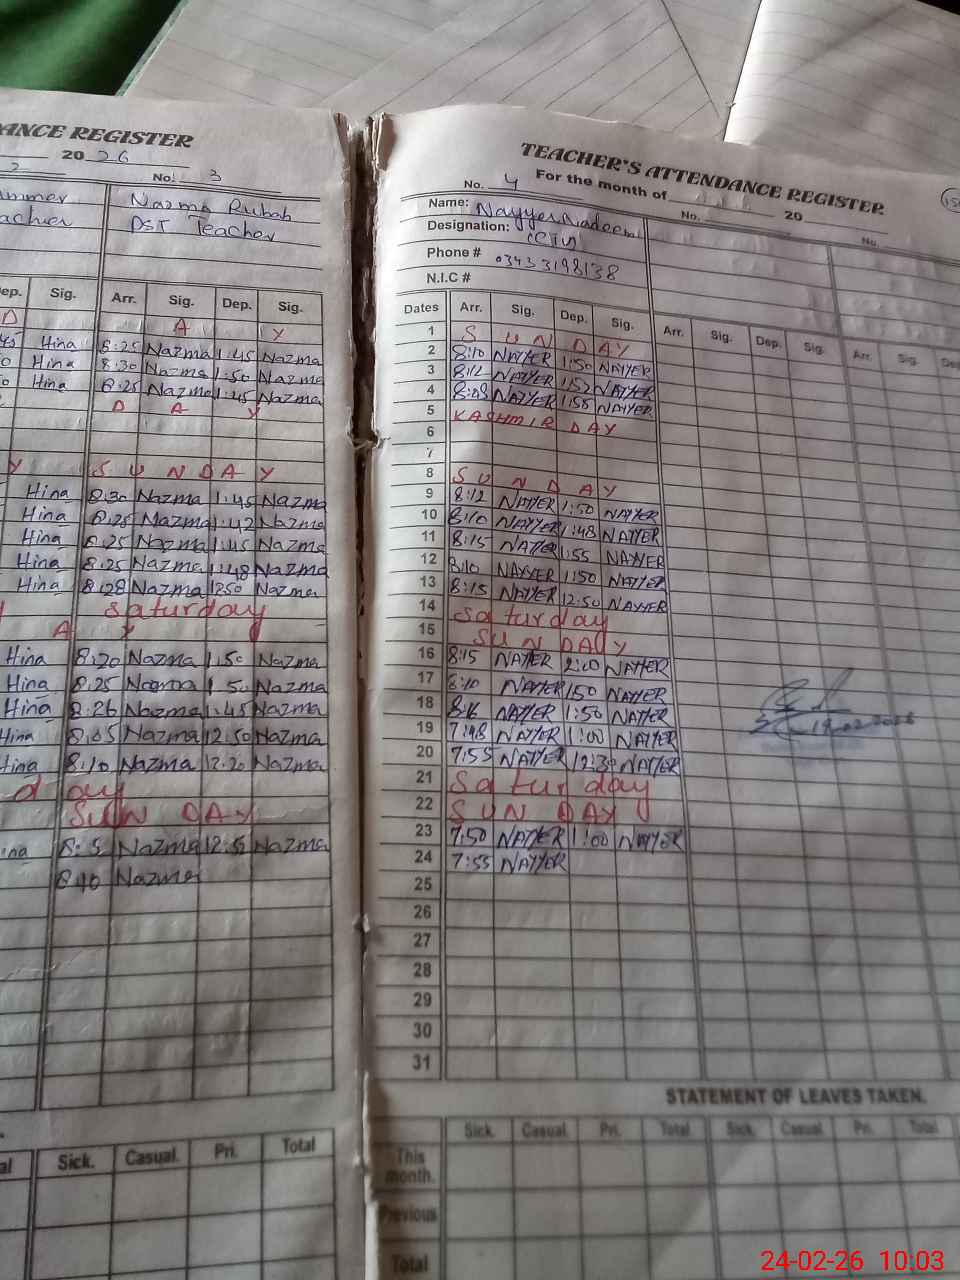 ANCE REGISTER
2 20 26
No. 3
Nazma Rubab
DST Teacher
ep. Sig. Arr. Sig. Dep. Sig.
D A Y
Hina 8:25 Nazma 1:45 Nazma
Hina 8:30 Nazma 1:50 Nazma
Hina 8:25 Nazma 1:45 Nazma
D A Y
Y S U N D A Y
Hina 8:30 Nazma 1:45 Nazma
Hina 8:25 Nazma 1:42 Nazma
Hina 8:25 Nazma 1:45 Nazma
Hina 8:25 Nazma 1:48 Nazma
Hina 8:28 Nazma 1250 Nazma
saturday
A Y
Hina 8:20 Nazma 1:50 Nazma
Hina 8:25 Nazma 1:50 Nazma
Hina 8:26 Nazma 1:45 Nazma
Hina 8:05 Nazma 12:50 Nazma
Hina 8:10 Nazma 12:20 Nazma
d ay
SUN DAY
ina 8:5 Nazma 12:5 Nazma
8:10 Nazma
al Sick. Casual. Pri. Total
TEACHER'S ATTENDANCE REGISTER
For the month of 20
No. 4 No. No.
Name: Nayyer Nadeem
Designation:
Phone # 03433198138
N.I.C #
Dates Arr. Sig. Dep. Sig. Arr. Sig. Dep. Sig. Arr. Sig. De
1 S U N D A Y
2 8:10 NAYYER 1:50 NAYYER
3 8:12 NAYYER 1:52 NAYYER
4 8:08 NAYYER 1:58 NAYYER
5 KASHMIR DAY
6
7
8 S U N D A Y
9 8:12 NAYYER 1:50 NAYYER
10 8:10 NAYYER 1:48 NAYYER
11 8:15 NAYYER 1:55 NAYYER
12 8:10 NAYYER 1:50 NAYYER
13 8:15 NAYYER 12:50 NAYYER
14 Saturday
15 SUN DAY
16 8:15 NAYYER 2:00 NAYYER
17 8:10 NAYYER 150 NAYYER
18 8:16 NAYYER 1:50 NAYYER
19 7:48 NAYYER 1:00 NAYYER
19.02.2026
20 7:55 NAYYER 12:30 NAYYER
21 Saturday
22 SUN DAY
23 7:50 NAYYER 1:00 NAYYER
24 7:55 NAYYER
25
26
27
28
29
30
31
STATEMENT OF LEAVES TAKEN.
Sick. Casual. Pri. Total Sick. Casual Pri. Total
This month.
Previous
Total
24-02-26 10:03